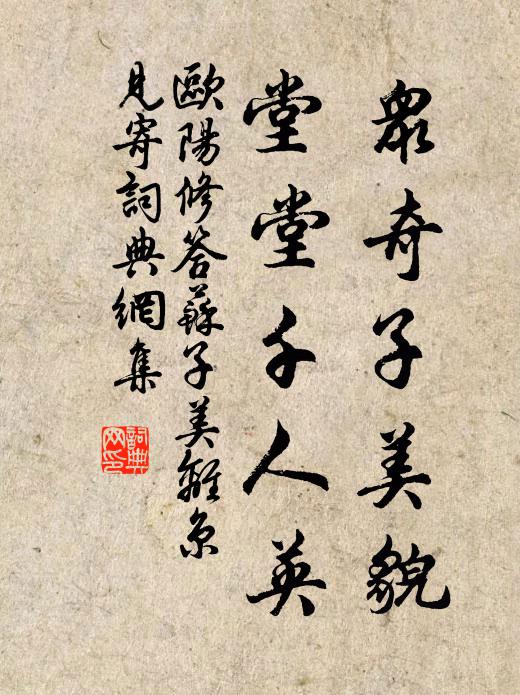 眾奇子美貌
堂堂千人英
歐陽修答蘇子美離京
見寄詞典網集
詞典
网印